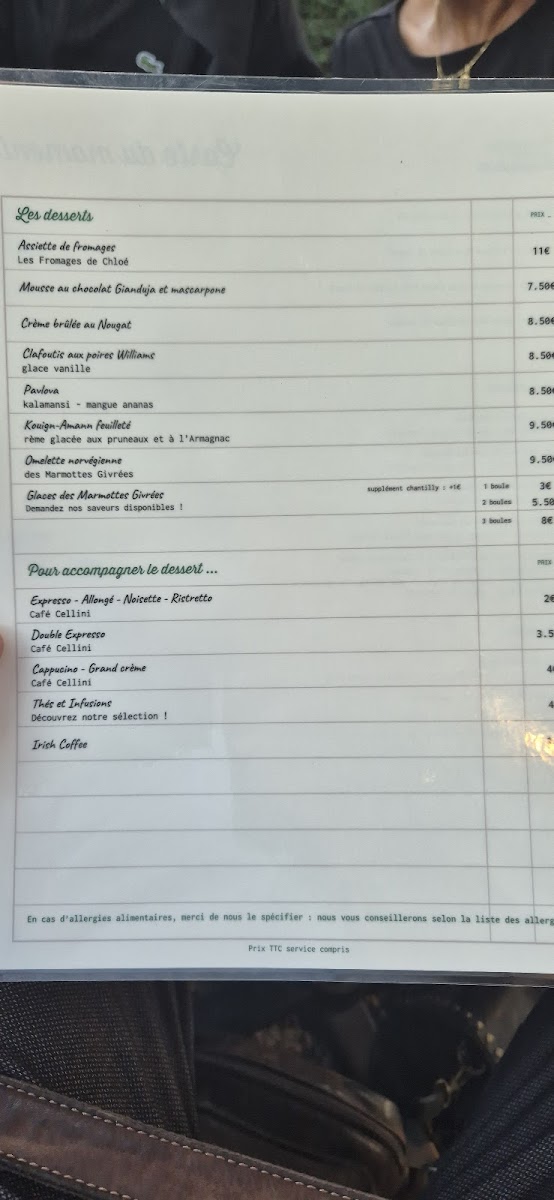 Carte du moment
Les desserts
PRIX
Assiette de fromages
11€
Les Fromages de Chloé
Mousse au chocolat Gianduja et mascarpone
7.50€
Crème brûlée au Nougat
8.50€
Clafoutis aux poires Williams
8.50€
glace vanille
Pavlova
8.50€
kalamansi - mangue ananas
Kouign-Amann feuilleté
9.50€
rème glacée aux pruneaux et à l'Armagnac
Omelette norvégienne
9.50€
des Marmottes Givrées
Glaces des Marmottes Givrées
supplément chantilly : +1€
1 boule
3€
Demandez nos saveurs disponibles !
2 boules
5.50
3 boules
8€
Pour accompagner le dessert ...
PRIX
Expresso - Allongé - Noisette - Ristretto
2€
Café Cellini
Double Expresso
3.5
Café Cellini
Cappucino - Grand crème
4€
Café Cellini
Thés et Infusions
4
Découvrez notre sélection !
Irish Coffee
En cas d'allergies alimentaires, merci de nous le spécifier : nous vous conseillerons selon la liste des allerg
Prix TTC service compris